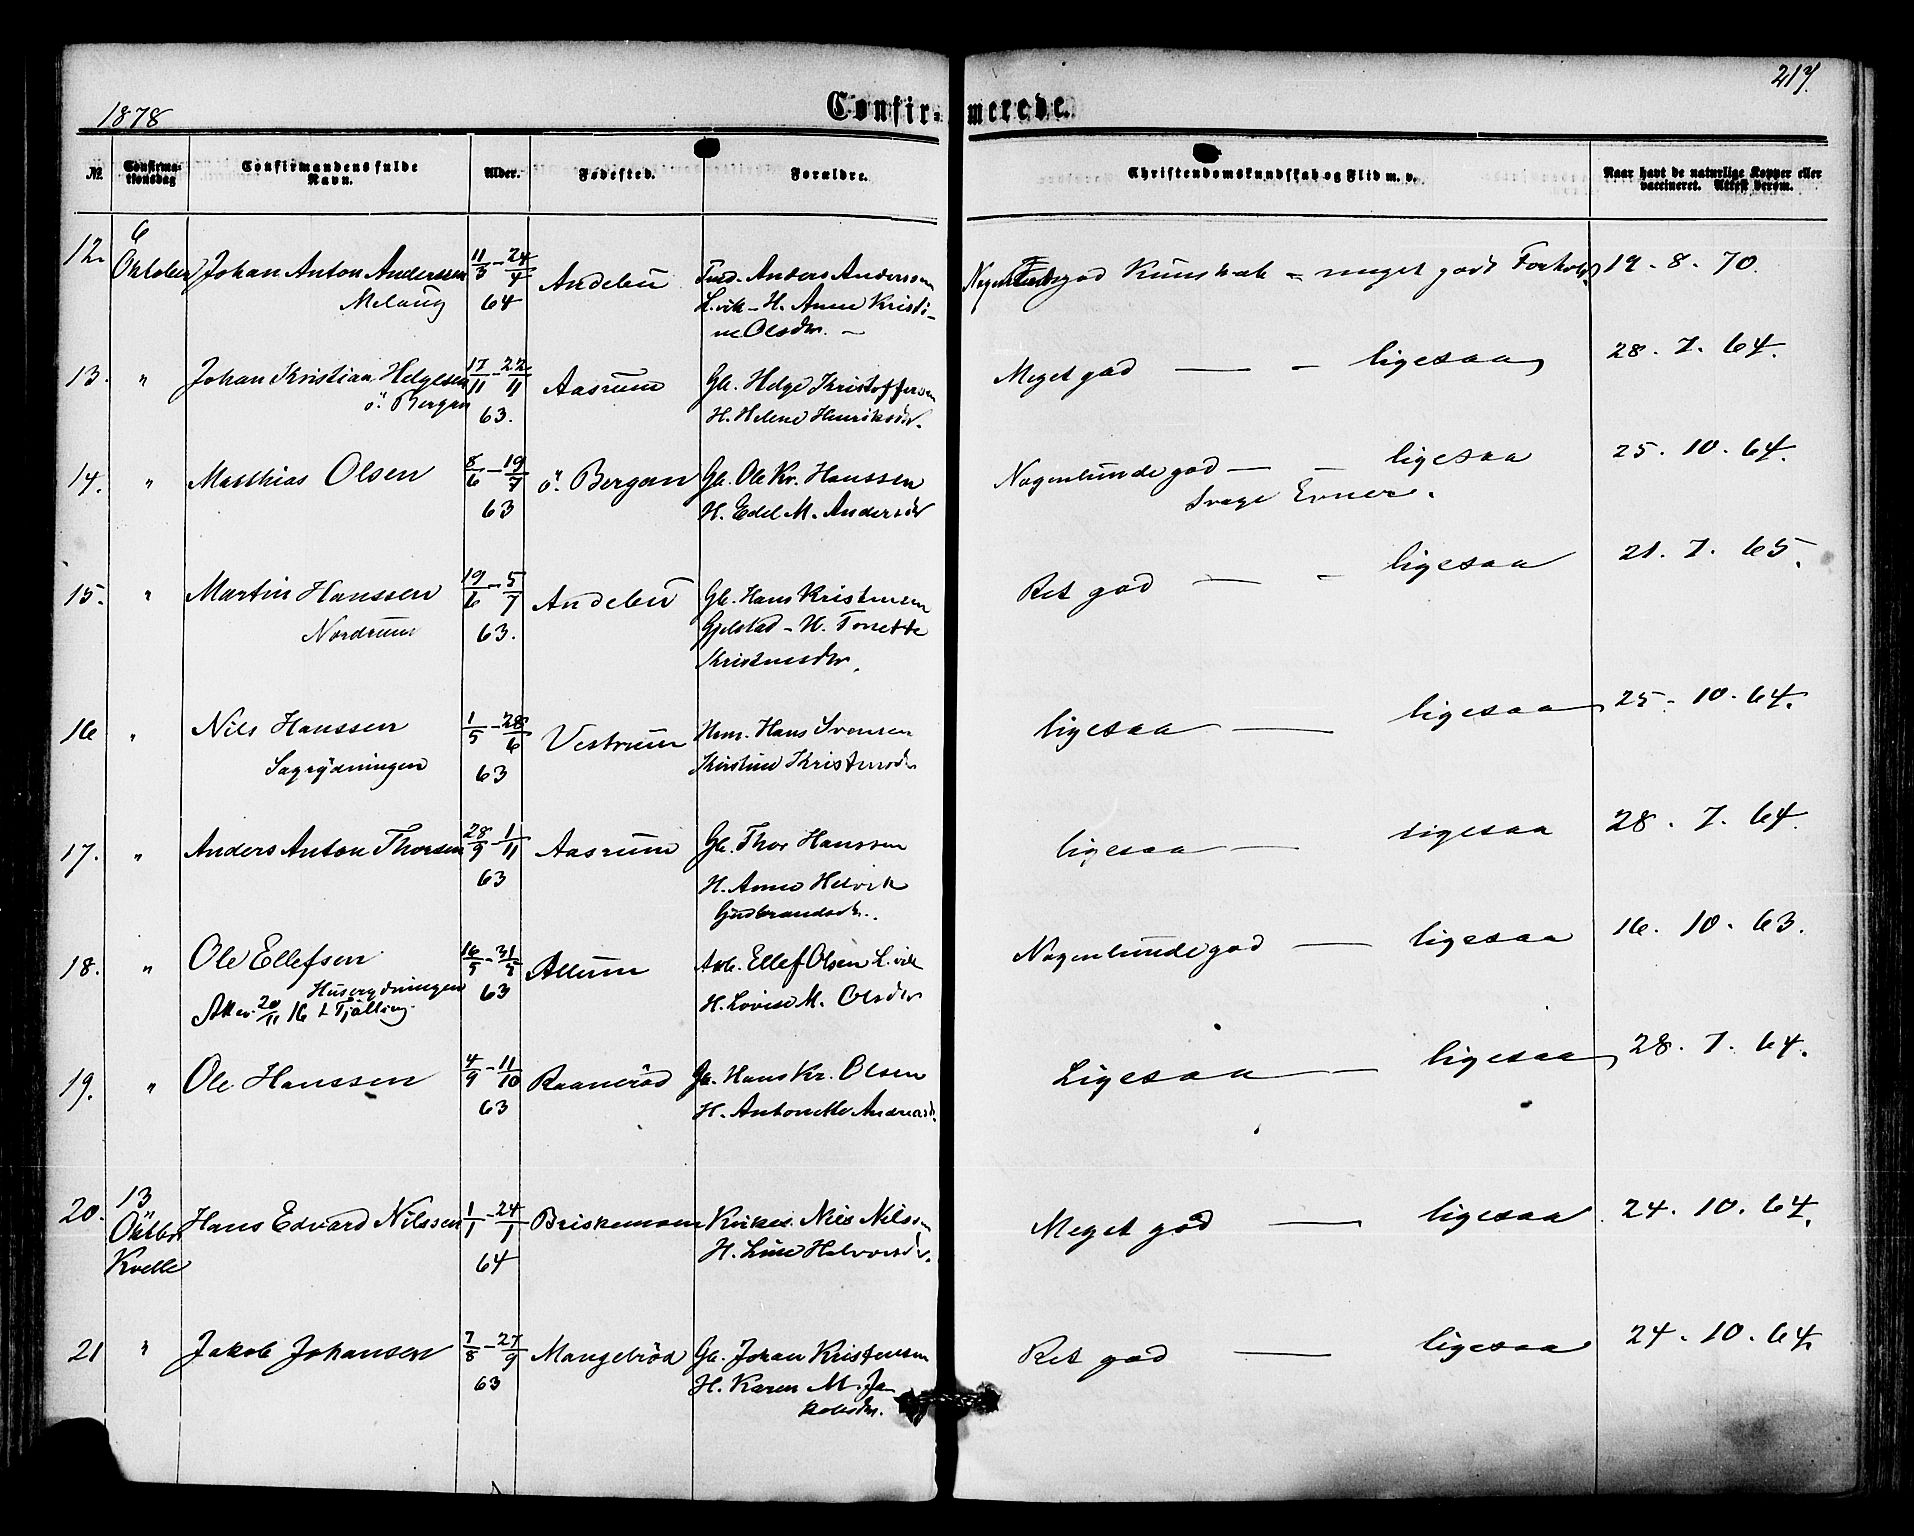 217.
1878
Confir- merede.
No.
Confirmationsdag
Confirmandens fulde Navn.
Alder.
Fødested.
Forældre.
Christendomskundskab og Flid m. v.
Naar havt de naturlige Kopper eller vaccineret. Attest derom.
12. 6 Oktober Johan Anton Anderssen 11/3 - 24/4 Andebu Anders Anderssen god Kunskab - meget godt Forhold 19 - 8 - 70.
64 L.vik - H. Anne Kristi-
ne Olsdr. -
13. " Johan Kristian Helgesen 17/11 - 22/11 Aasrum Gb. Helge Kristoffersen Meget god — - ligesaa 28 - 7 - 64.
ö. Bergan 63. H. Helene Henriksdr.
14. " Matthias Olsen 8/6 - 19/7 ö. Bergan Gb. Ole Kr. Hanssen Nogenlunde god — - ligesaa 25. 10. 64.
63 H. Edel M. Andersdr Svage Evner.
15. " Martin Hanssen 19/6 - 5/7 Andebu Gb. Hans Kristensen Ret god — - ligesaa 21. 7. 65.
Nordrum 63. Gjelstad - H. Tonette
Kristensdr.
16 " Nils Hanssen 1/5 - 28/6 Vestrum Hans Svensen ligesaa — ligesaa 25 - 10 - 64.
Sagrydningen 63 Kirstine Kristensdr
17. " Anders Anton Thorsen 28/9 - 1/11 Aasrum Gb. Thor Hanssen ligesaa — ligesaa 28. 7. 64.
63 H. Anne Helvik
Gudbrandsdr.
18. " Ole Ellefsen 16/5 - 31/5 Allum Arb. Ellef Olsen L.vik Nogenlunde god — ligesaa 16. 10. 63.
Huserydningen 63 H. Lovise M. Olsdr
20/11 16 t Tjölling.
19. " Ole Hanssen 4/9 - 11/10 Raanerød Gb. Hans Kr. Olsen Ligesaa — ligesaa 28. 7. 64.
63 H. Antonette Andreasd.
20. 13 Oktbr Hans Edvard Nilssen 1/1 - 24/1 Briskemoen Nils Nilssen Meget god — ligesaa 24. 10. 64.
Kvelle 64 H. Line Halvorsdr.
21 " Jakob Johansen 7/8 - 27/9 Mangebrød Gb. Johan Kristensen Ret god — ligesaa 24. 10. 64.
63 H. Karen M. Ja-
kobsdr.